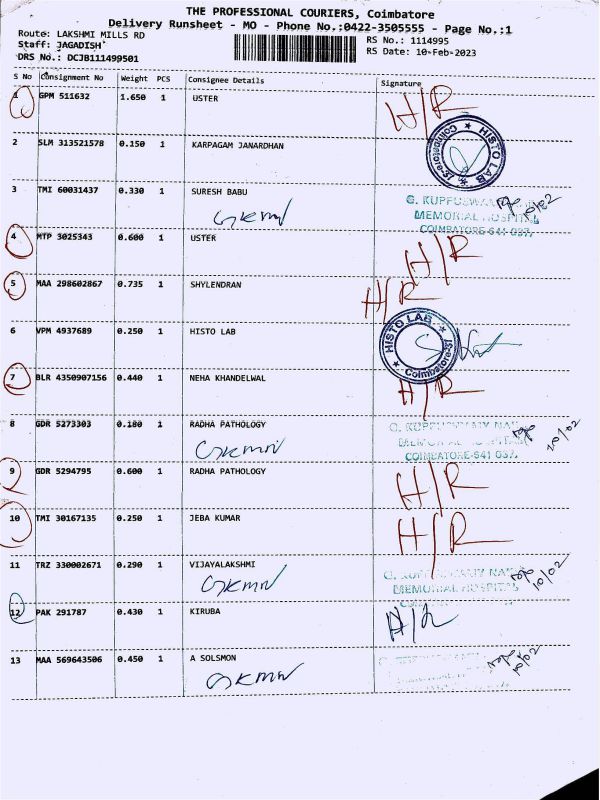 THE PROFESSIONAL COURIERS, Coimbatore
Delivery Runsheet - MO - Phone No.:0422-3505555 - Page No.:1
Route: LAKSHMI MILLS RD RS No.: 1114995
Staff: JAGADISH RS Date: 10-Feb-2023
DRS No.: DCJB111499501
S No Consignment No Weight PCS Consignee Details Signature
1 GPM 511632 1.650 1 USTER H/R
2 SLM 313521578 0.150 1 KARPAGAM JANARDHAN HISTO LAB Coimbatore-37
3 TMI 60031437 0.330 1 SURESH BABU
GKMN G. KUPPUSWAMY 10/02
MEMORIAL HOSPITAL
COIMBATORE-641 037.
4 MTP 3025343 0.600 1 USTER H/R
5 MAA 298602867 0.735 1 SHYLENDRAN H/R
6 VPM 4937689 0.250 1 HISTO LAB HISTO LAB Coimbatore-37
7 BLR 4350907156 0.440 1 NEHA KHANDELWAL H/R
8 GDR 5273303 0.180 1 RADHA PATHOLOGY G. KUPPUSWAMY NAI
GKMN MEMORIAL HOSPITAL 10/02
COIMBATORE-641 037.
9 GDR 5294795 0.600 1 RADHA PATHOLOGY H/R
10 TMI 30167135 0.250 1 JEBA KUMAR H/R
11 TRZ 330002671 0.290 1 VIJAYALAKSHMI
GKMN G. KUPPUSWAMY NAI 10/02
MEMORIAL HOSPITAL
12 PAK 291787 0.430 1 KIRUBA H/R
13 MAA 569643506 0.450 1 A SOLSMON 10/02
GKMN